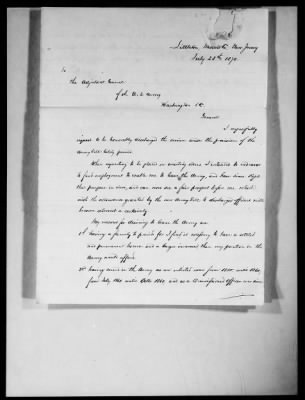 Littleton, Morris Co. New Jersey
July 28th 1870.
To
The Adjutant General
of the U. S. Army
Washington DC.
General
I respectfully
request to be honorably discharged the service under the provision of the
Army bill lately passed.
When reporting to be placed on waiting orders I intended to endeavor
to find employment to enable me to leave the Army, and have since kept
that purpose in view, and now see a fair prospect before me which
with the allowance granted by the new Army bill to discharged officers will
become almost a certainty.
My reasons for desiring to leave the Army are
1st having a family to provide for I find it necessary to have a settled
and permanent home and a larger income than my position in the
Army would afford.
2d having served in the Army as an enlisted man from 1855 until 1860,
from July 1860 until Octbr 1862, and as a Commissioned Officer ever since